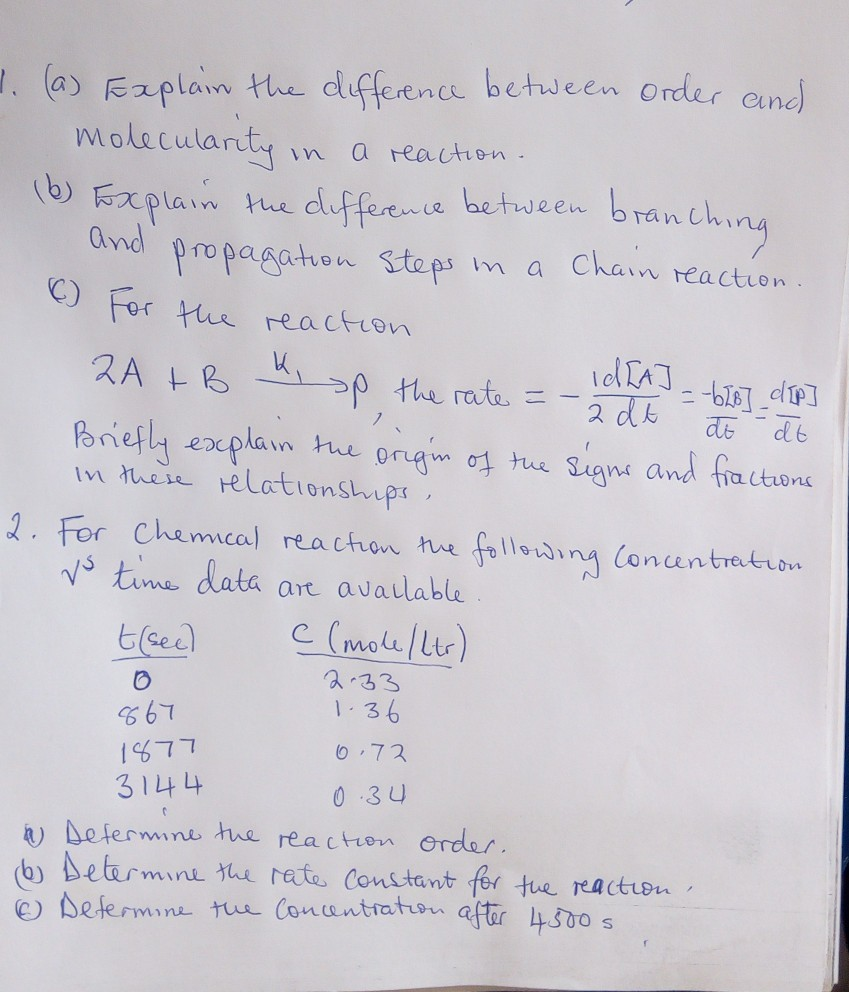 1. (a) Explain the difference between order and
molecularity in a reaction.
(b) Explain the difference between branching
and propagation steps in a chain reaction.
(c) For the reaction
2A + B —K₁→ P, the rate = - 1 d[A] / 2 dt = -b[B] / dt = d[P] / dt
Briefly explain the origin of the signs and fractions
in these relationships.
2. For chemical reaction the following concentration
vs time data are available.
t(sec) C (mole/ltr)
0 2.33
867 1.36
1877 0.72
3144 0.34
a) Determine the reaction order.
(b) Determine the rate constant for the reaction.
(c) Determine the concentration after 4500 s